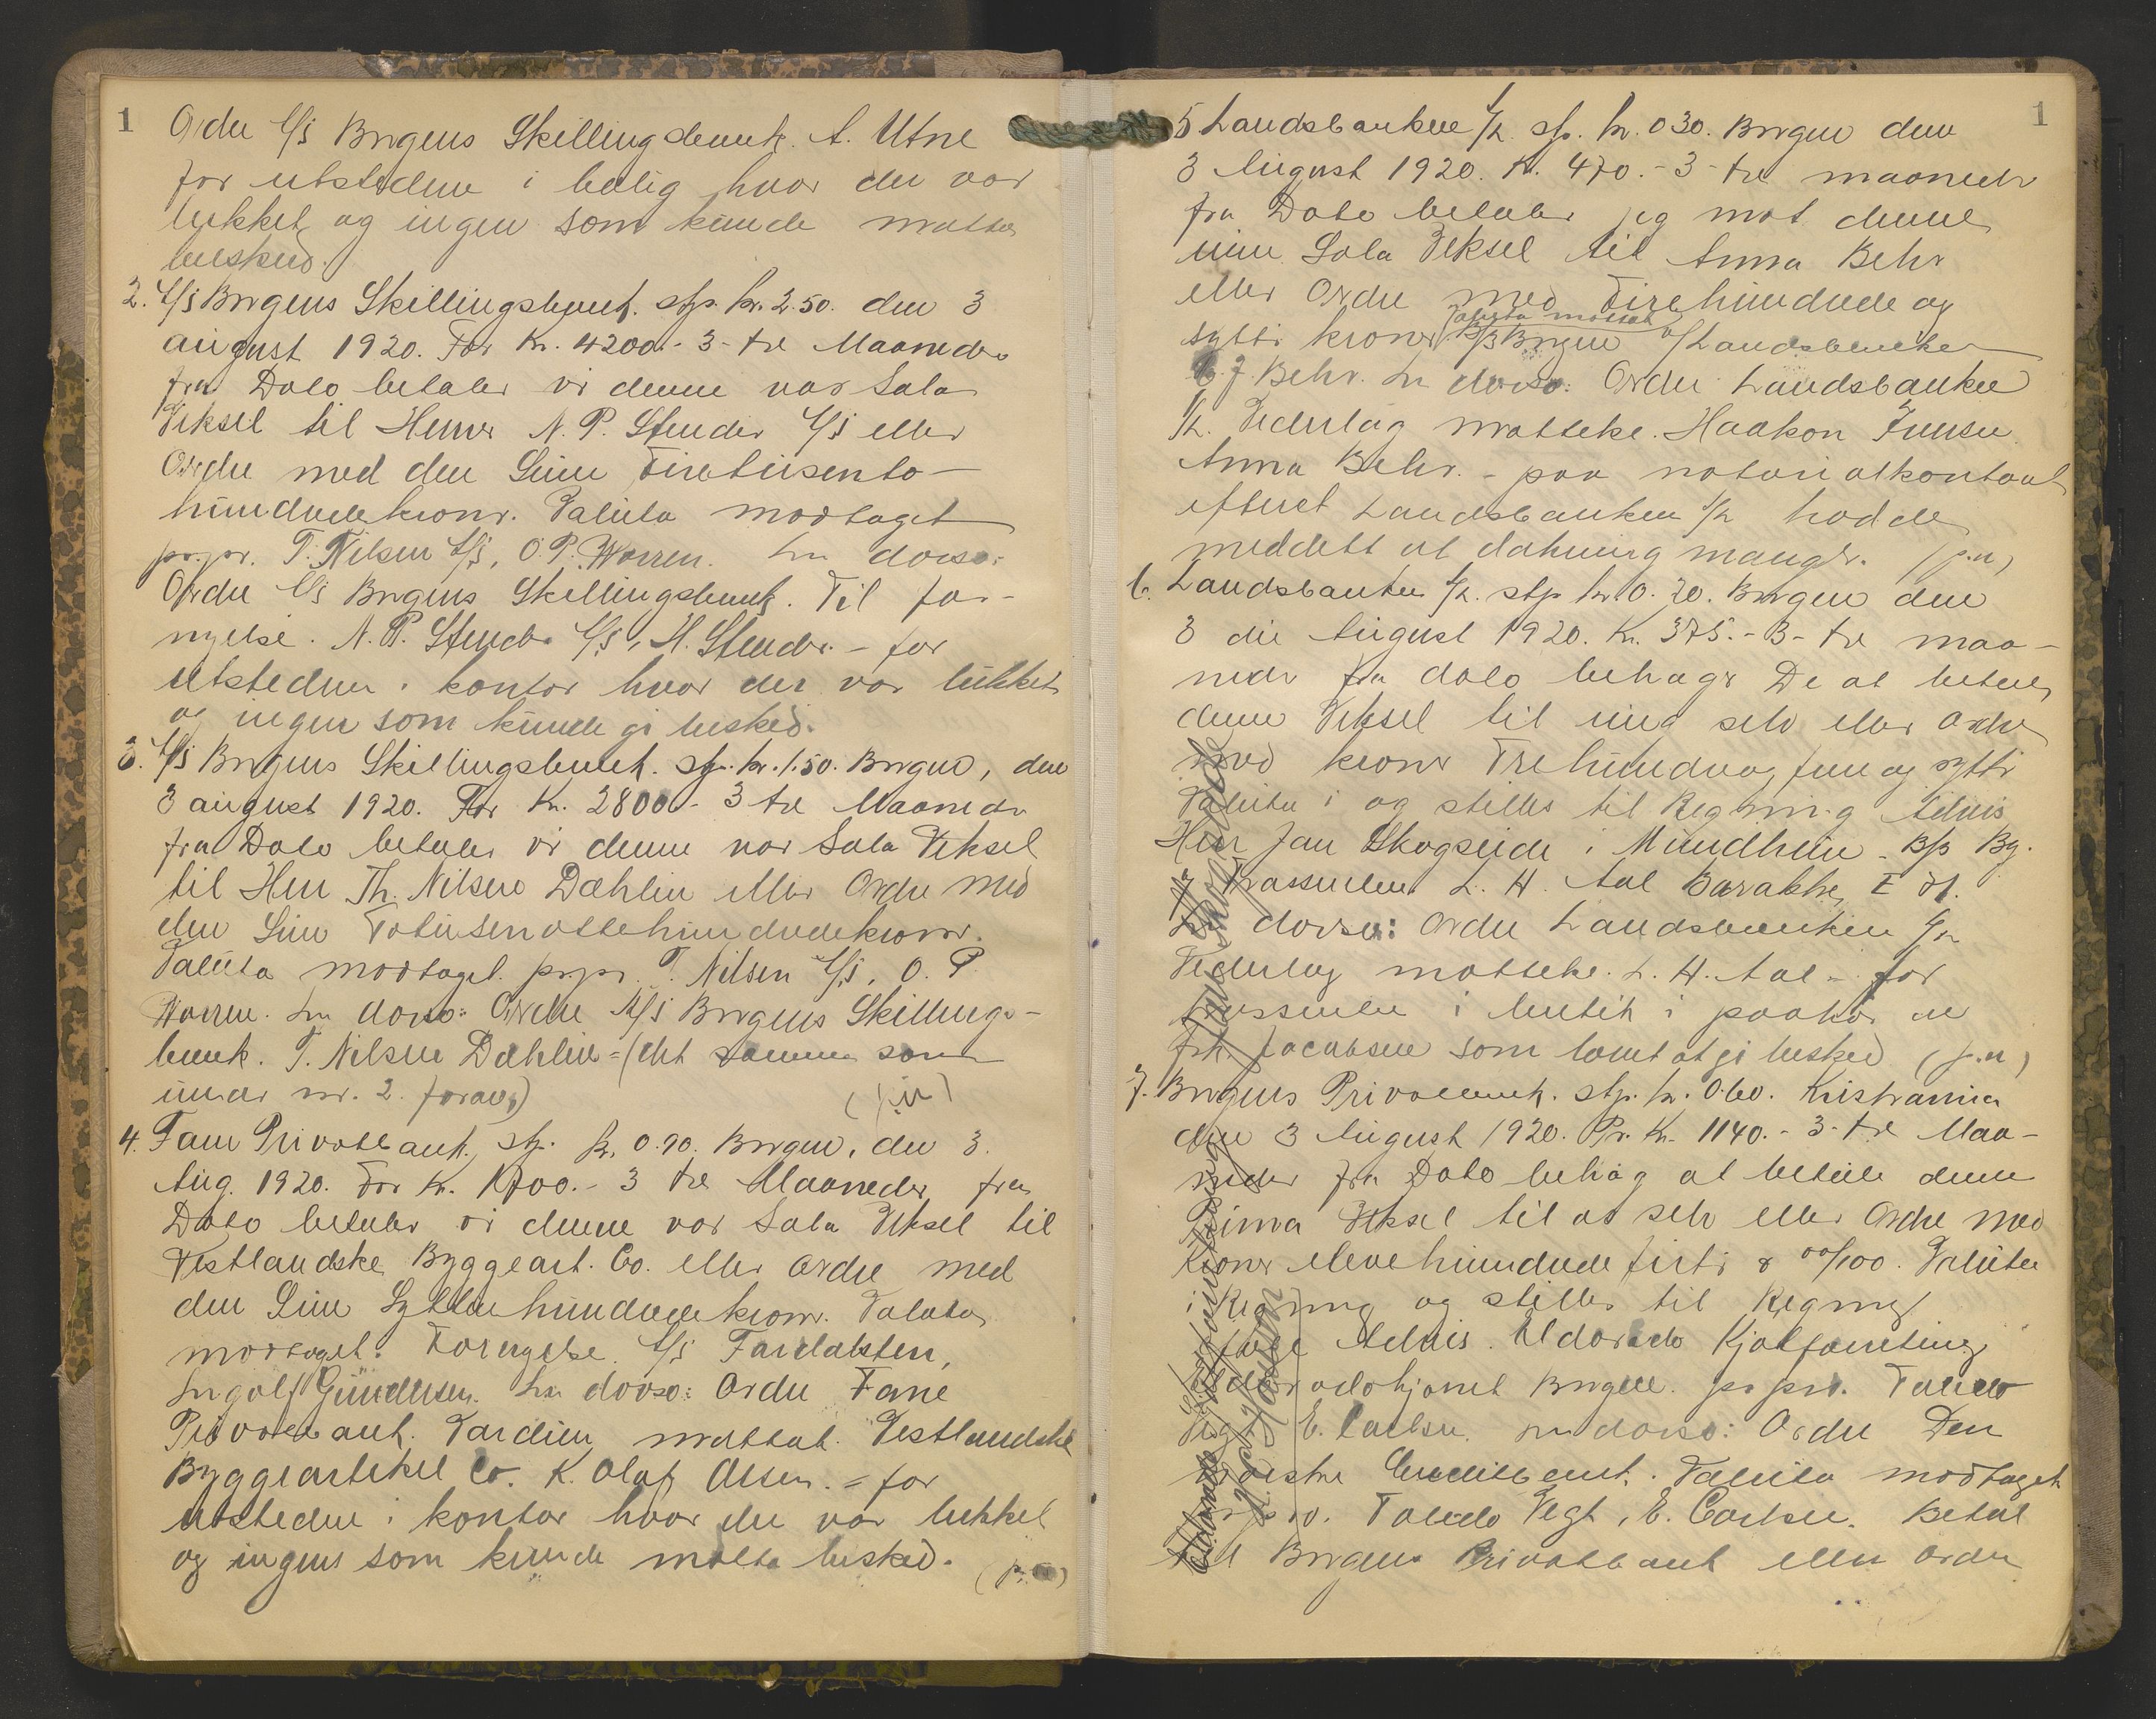 1
Ordre A/S Bergens Skillingsbank. A. Utne
for utstederen i bolig hvor der var
lukket og ingen som kunde motta
besked.
2. A/S Bergens Skillingsbank. stp. kr. 2.50. den 3
august 1920. For Kr. 4200.- 3- tre Maaneder
fra Dato betaler vi denne vor Sola
Veksel til Herrer N. P. Stender A/S eller
Ordre med den Sum Firetusento-
hundredekroner. Valuta modtaget
pr.pr. T. Nilsen A/S, O. P. Worren. In dorso:
Ordre A/S Bergens Skillingsbank. Til for-
nyelse. N. P. Stender A/S, H. Stender. - for
utstederen i kontor hvor der var lukket
og ingen som kunde gi besked.
3. A/S Bergens Skillingsbank. stp. kr. 1.50. Bergen, den
3 august 1920. For Kr. 2800.- 3 tre Maaneder
fra Dato betaler vi denne vor Sola Veksel
til Herr Th. Nilsen Dæhlin eller Ordre med
den Sum Totusenottehundredekroner.
Valuta modtaget. pr.pr. T. Nilsen A/S, O. P.
Worren. In dorso: Ordre A/S Bergens Skillings-
bank. T. Nilsen Dæhlin = (det samme som
under nr. 2. foran)
4. Fane Privatbank. stp. kr. 0.90. Bergen, den 3.
Aug. 1920. For Kr. 1700.- 3 tre Maaneder fra
Dato betaler vi denne vor Sola Veksel til
Vestlandske Byggeart. Co. eller ordre med
den Sum Syttenhundredekroner. Valuta
modtaget. Fornyelse. A/S
Ingolf Gundersen. In dorso: Ordre Fane
Privatbank. mottat. Vestlandske
Byggeartikel Co. K. Olaf Olsen. = for
utstederen i kontor hvor der var lukket
og ingen som kunde motta besked.
1
5 Landsbanken A/L. stp. kr. 0 30. Bergen den
3 August 1920. Kr. 470.- 3- tre maaneder
fra Dato betaler jeg mot denne
min Sola Veksel til Anna Behr
eller Ordre med Firehundrede og
Valuta mottat
sytti kroner B/B Bergen a/Landsbanken
C. J. Behr. In dorso: Ordre Landsbanken
A/L. Vederlag motteke. Haakon Jensen
Anna Behr. - paa notarialkontoret
efteret Landsbanken A/L hadde
meddelt at dækning mangler. (p.n)
6. Landsbanken A/L. stp kr 0.20. Bergen den
3 die August 1920. Kr. 375.- 3- tre maa-
neder fra dato behager De at betale
denne Veksel til mig selv eller ordre
med kroner Trehundreog fem og sytti
Valuta i og stilles til Regning Advis
Herr Jan Skogseide i Mundheim - B/B Bg.
Trassenten L. H. Aal Barakke I
In dorso: Ordre Landsbanken A/L
Vederlag motteke. L. H. Aal - for
trassenten i butik i paahør av
frk. Jacobsen som lovet at gi besked (p.n)
7. Bergens Privatbank. stp. kr. 0.60. Kristiania
den 3 August 1920. Pr. Kr. 1140.- 3- tre Maa-
neder fra Dato behag at betale denne
Prima Veksel til os selv eller Ordre med
Kroner elevehundrede firti & 00/100. Valuta
i Regning og stilles til Regning
Advis. Eldorado Kjølforretning
Bergen. pr pro. Toledo
Vegt E. Carlsen. In dorso: Ordre Den
norske Creditbank. Valuta modtaget
Toledo Vegt, E. Carlsen. Betal
til Bergens Privatbank eller ordre
Jan Skogseide
Eldorado Kjølforretning